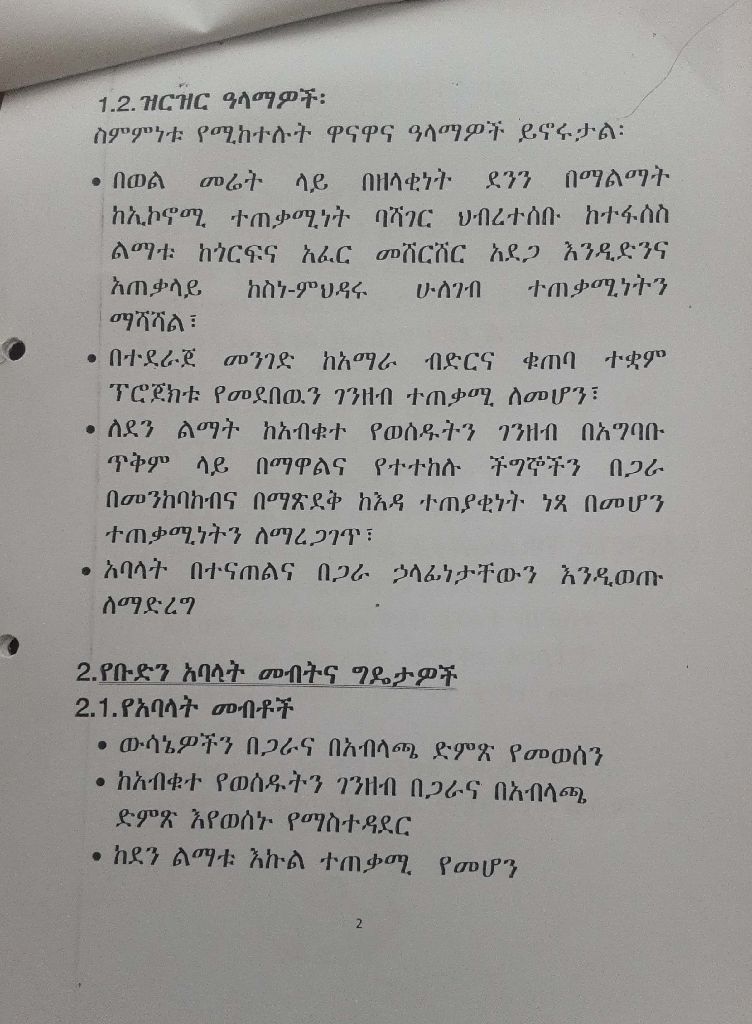 1.2. ዝርዝር ዓላማዎች፡
ስምምነቱ የሚከተሉት ዋናዋና ዓላማዎች ይኖሩታል፡
• በወል መሬት ላይ በዘላቂነት ደንን በማልማት
ከኢኮኖሚ ተጠቃሚነት ባሻገር ህብረተሰቡ ከተፋሰስ
ልማቱ ከጎርፍና አፈር መሸርሸር አደጋ እንዲድንና
አጠቃላይ ከስነ-ምህዳሩ ሁለገብ ተጠቃሚነትን
ማሻሻል፣
• በተደራጀ መንገድ ከአማራ ብድርና ቁጠባ ተቋም
ፕሮጀክቱ የመደበዉን ገንዘብ ተጠቃሚ ለመሆን፣
• ለደን ልማት ከአብቁተ የወሰዱትን ገንዘብ በአግባቡ
ጥቅም ላይ በማዋልና የተተከሉ ችግኞችን በጋራ
በመንከባከብና በማጽደቅ ከእዳ ተጠያቂነት ነጻ በመሆን
ተጠቃሚነትን ለማረጋገጥ፣
• አባላት በተናጠልና በጋራ ኃላፊነታቸውን እንዲወጡ
ለማድረግ
2.የቡድን አባላት መብትና ግዴታዎች
2.1.የአባላት መብቶች
• ውሳኔዎችን በጋራና በአብላጫ ድምጽ የመወሰን
• ከአብቁተ የወሰዱትን ገንዘብ በጋራና በአብላጫ
ድምጽ እየወሰኑ የማስተዳደር
• ከደን ልማቱ እኩል ተጠቃሚ የመሆን
2